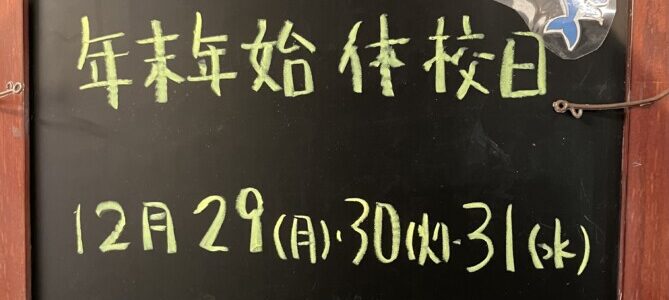 年末年始 休校日
12月29(月)·30(火)·31(水)